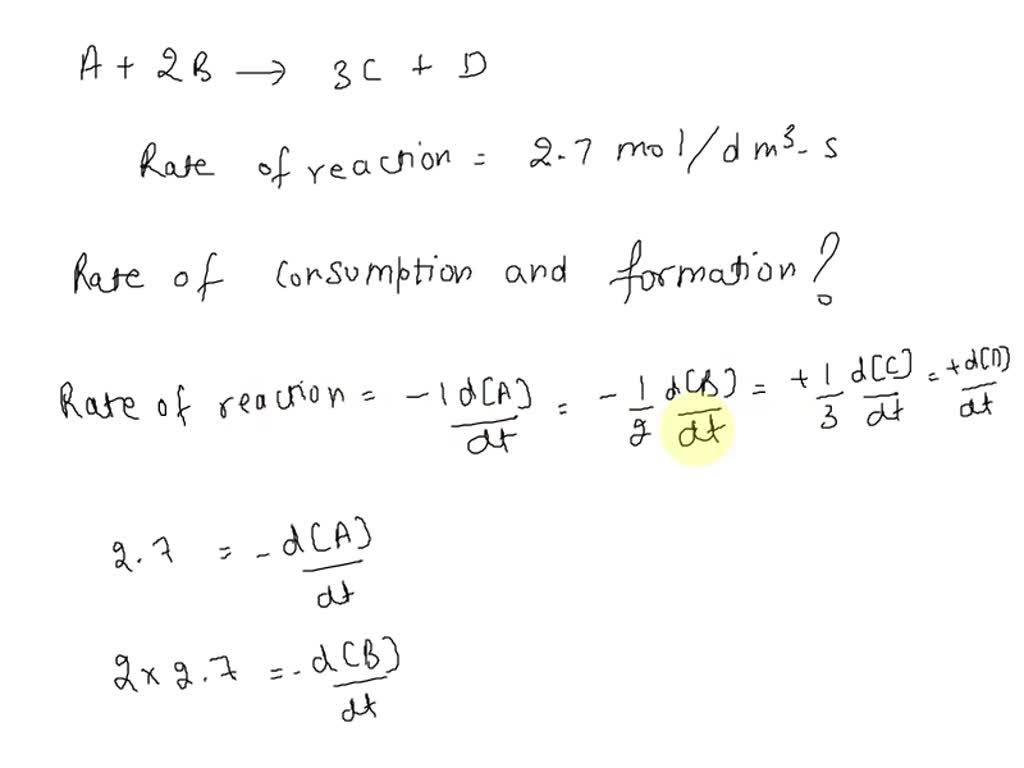 A + 2B → 3C + D
Rate of reaction = 2.7 mol/dm³-s
Rate of consumption and formation?
Rate of reaction = -1 d[A]/dt = -1/2 d[B]/dt = +1/3 d[C]/dt = +d[D]/dt
2.7 = -d[A]/dt
2 × 2.7 = -d[B]/dt